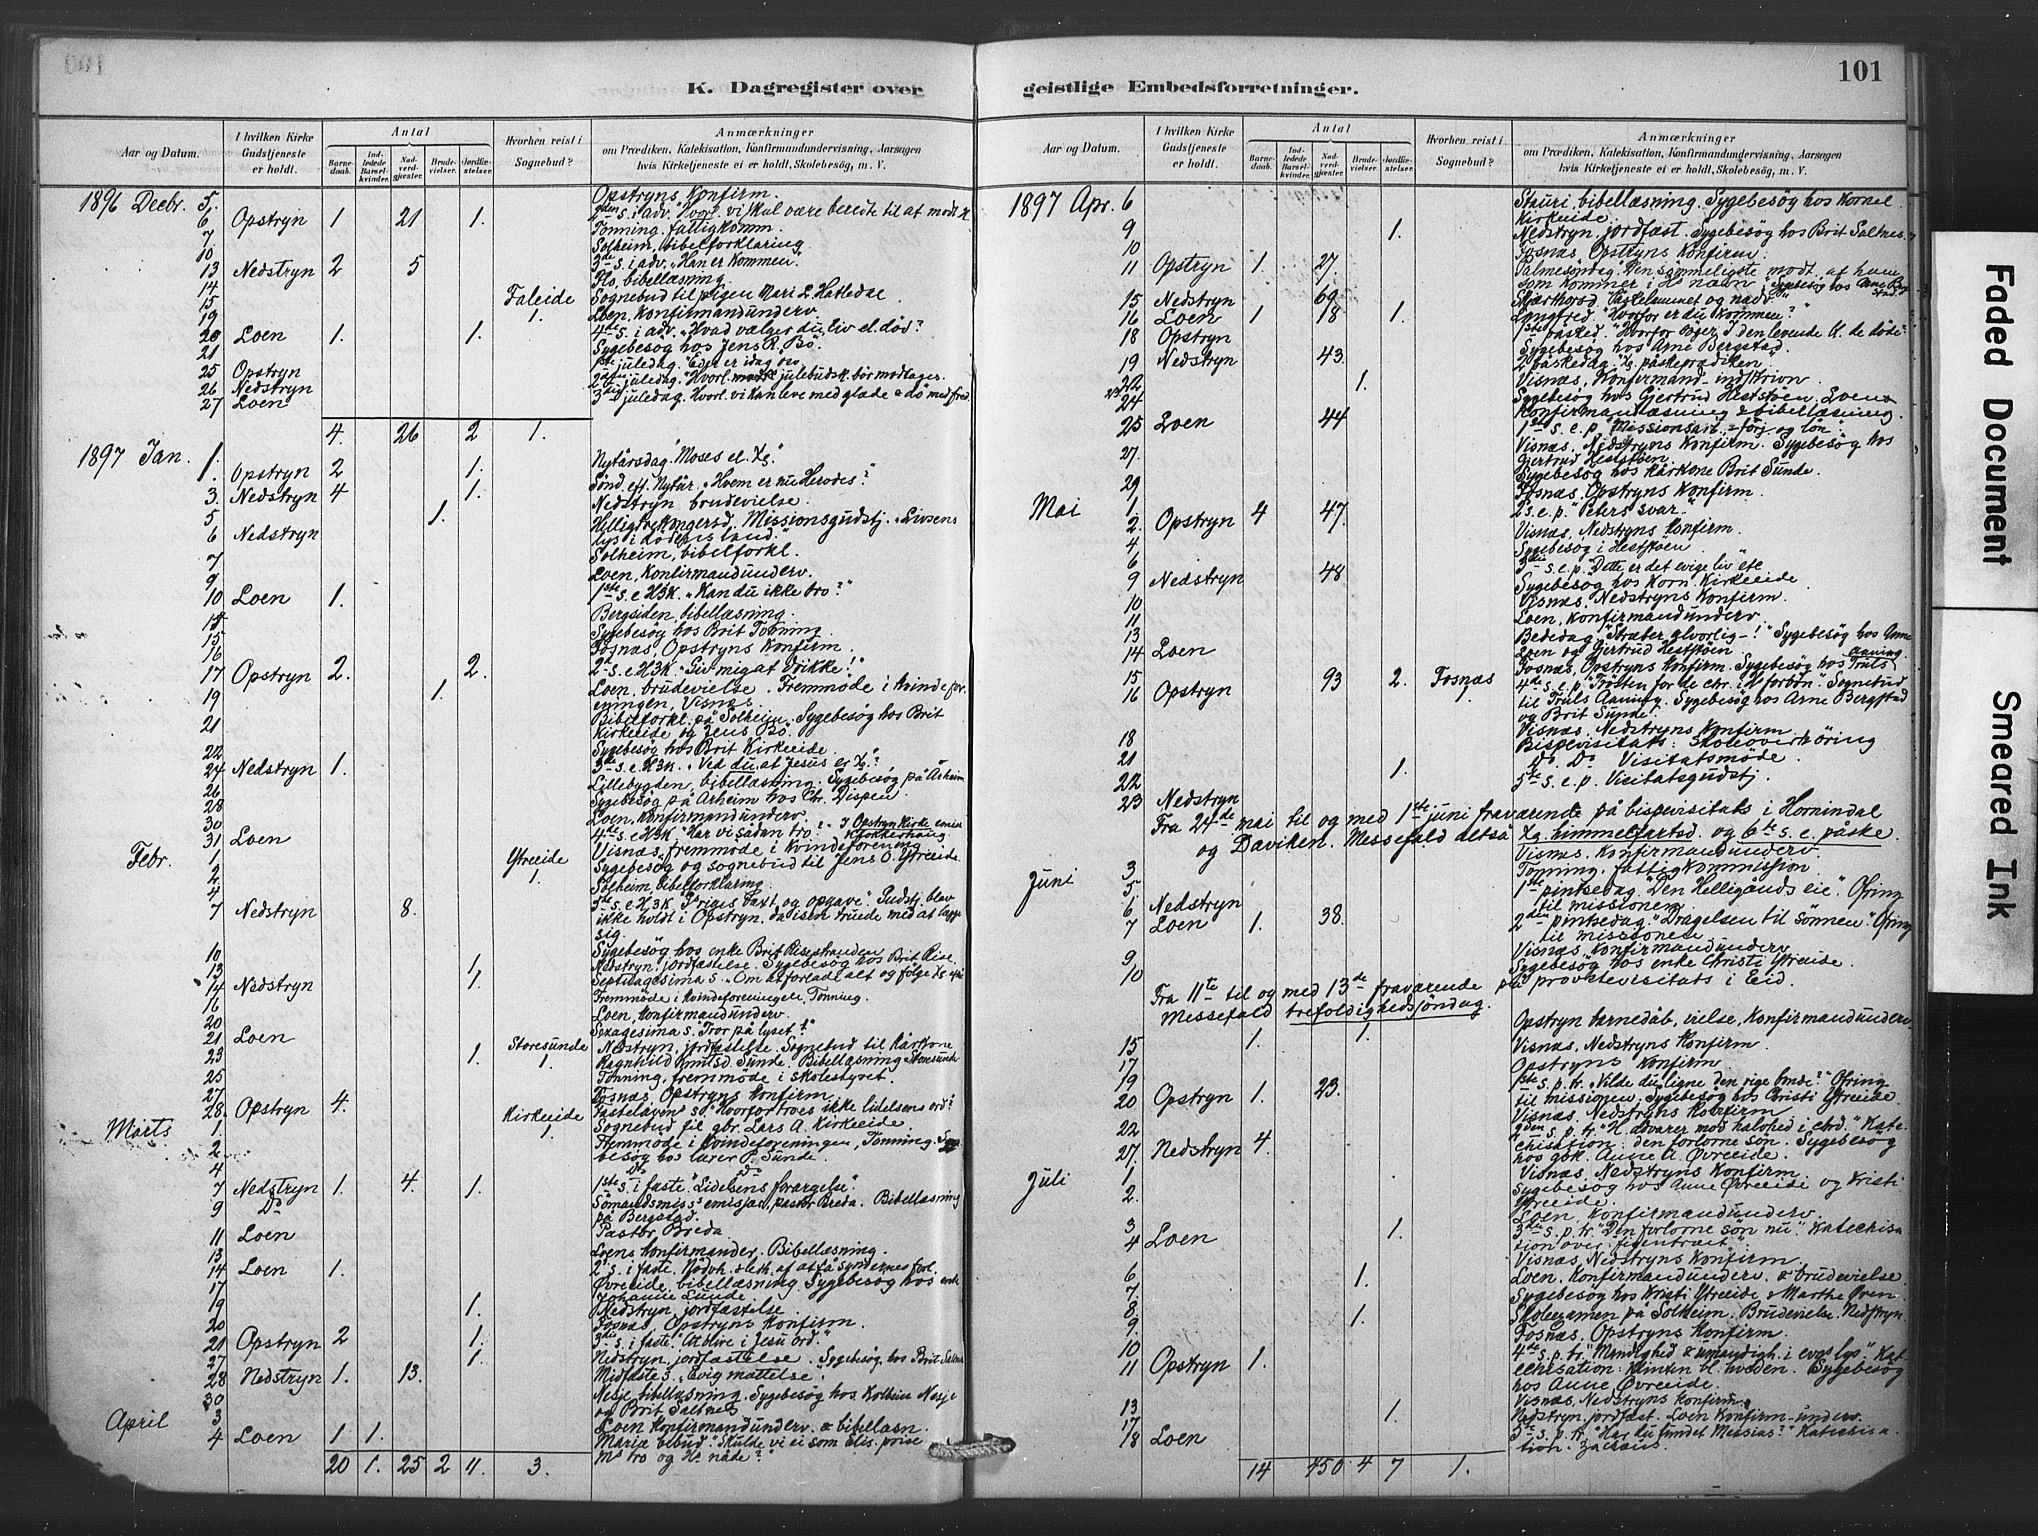 101
K. Dagregister over geistlige Embedsforretninger.
Aar og Datum. I hvilken Kirke Gudstjeneste er holdt. Antal Barnedaab. Indledede Barselkvinder. Nadverdgjæster. Brudevielser. Jordfæstelser. Hvorhen reist i Sognebud? Anmærkninger om Prædiken, Katekisation, Konfirmandundervisning, Aarsagen hvis Kirketjeneste ei er holdt, Skolebesøg, m. V.
1896 Decbr. 5. Opstryns Konfirm.
6 Opstryn 1 21 1. 2den s. i adv. "Hvorl. vi skul være beredte til at modt.
7 Tonning, fattigkomm.
10 Solheim, bibelforklaring.
13 Nedstryn 2 5 3de s. i adv. "Han er kommen".
14 Flo, bibellæsning.
15 Faleide 1. Sognebud til pigen Mari L. Hatledal.
19 Loen, Konfirmandunderv.
20 Loen 1. 1. 4de s. i adv. "Hvad vælger du, liv el. død?
21 Sygebesög hos Jens R. Bö.
25 Opstryn 1ste juledag. "Eder er idag
26 Nedstryn 2den juledag. "Hvorl. julebudsk. bör modtages.
27 Loen 3die juledag. Hvorl. vi kan leve med glæde & dö med fred.
4. 26 2 1.
1897 Jan. 1. Opstryn 2 1. Nytårsdag. "Moses el.
3. Nedstryn 4 1. Sönd. eft. Nytår. "Hvem er nu Herodes?"
5 1. Nedstryn brudevielse.
6 Nedstryn Helligtrekongersd. Missionsgudstj. "Livsens
lys i dödens land."
7 Solheim, bibelforkl.
9 Loen, Konfirmandunderv.
10 Loen 1. 1ste s. e. H3K. "Kan du ikke tro?"
Bergsiden, bibellæsning.
15 Sygebesög hos Brit Tonning.
16 Fosnæs, Opstryns Konfirm.
17 Opstryn 2. 2. 2d s. e. H3K. "Giv mig at drikke!"
19 1. Loen, brudevielse. Fremmöde i kvindefor-
eningen, Visnæs.
21 Bibelforkl. på Solheim. Sygebesög hos Brit
Kirkeeide og Jens Bö.
22 Sygebesög hos Brit Kirkeeide.
24 Nedstryn 1. 3de s. e. H3K. "Ved du, at Jesus er
26 Lillebygden, bibellæsning. Sygebesög på Årheim
28 Sygebesög på Årheim hos Chr. Dispen.
30 Loen, Konfirmandunderv.
31 Loen 4de s. e. H3K "Har vi sådan tro? I Opstryn Kirke
Klokkerhaug.
Febr. 1 Visnæs, fremmöde i Kvindeforening
2 Ytreeide 1. Sygebesög og sognebud til Jens O. Ytreeide.
4 Solheim, bibelforklaring.
7 Nedstryn 8. 5te s. e. H3K G. riges vaxt og opgave". Gudstj. blev
ikke holdt i Opstryn, da isen truede med at lægge
sig.
10 Sygebesög hos enke Brit Risestranden
13 1. Nedstryn, jordfæstelse. Sygebesög hos Brit Rise.
14 Nedstryn 1. Septuagesima s. "Om at forlade alt og fölge
16 Fremmöde i Kvindeforeningen, Tonning.
20 Loen, konfirmandunderv.
21 Loen Sexagesima s. "Tror på lyset!"
23 1. Storesunde 1. Nedstryn, jordfæstelse. Sognebud til kårkone
25 Ragnhild Sunde. Bibellæsning Storesunde
Tonning, fremmöde i skolestyret.
27 Fosnæs, Opstryns Konfirm.
28. Opstryn 4. Fastelavens s. "Hvorfor troes ikke lidelsens ord?
Marts 1. Kirkeeide 1. Sognebud til gbr. Lars A. Kirkeeide.
2 Fremmöde i kvindeforeningen, Tonning. Syge-
besög hos lærer P. Sunde.
4 Do Do
7 Nedstryn 1. 4. 1. 1ste s. i faste. "Lidelsens forargelse".
9 Do Sömandsmiss. pastor Breda. Bibellæsning
på Bergstad.
11 Loen Pastor Breda
13 Loens Konfirmander. Bibellæsning.
14 Loen 1. 2d s. i faste.
17 Øvreeide, bibellæsning. Sygebesög hos enke
Johanne Sunde.
19 1. Nedstryn, jordfæstelse.
20 Fosnæs, Opstryns Konfirm.
21 Opstryn 2 1. 3die s. i faste. "At blive i Jesu ord."
27 1. Nedstryn, jordfæstelse. Sygebesög hos Brit Saltnes
28 Nedstryn 1. 13. Midfaste s. "Evig mættelse".
30 Nesje bibellæsning. Sygebesög hos Kolbein Nesje
og Brit Saltnes
April 3 Loen Konfirmandunderv. & bibellæsn.
4 Loen 1 1. Mariæ bebud. "Skulde vi ei som Elis. prise
Ms tro og Hs nåde?"
20 1. 25 2 11. 3.
101
Aar og Datum. I hvilken Kirke Gudstjeneste er holdt. Antal Barnedaab. Indledede Barselkvinder. Nadverdgjæster. Brudevielser. Jordfæstelser. Hvorhen reist i Sognebud? Anmærkninger om Prædiken, Katekisation, Konfirmandundervisning, Aarsagen hvis Kirketjeneste ei er holdt, Skolebesøg, m. V.
1897 Apr. 6 Stauri, bibellæsning. Sygebesög hos Kornel.
Kirkeeide.
9 1. Nedstryn, jordfæst. Sygebesög hos Brit Saltnes.
10 Fosnæs, Opstryns Konfirm.
11 Opstryn 1. 27. Palmesöndag. "Den sömmeligste modt. af ham
som kommer i Hs navn". Sygebesög hos Arne Berg-
stad.
15 Nedstryn 69. Skjærtorsd. "Påskelammet og nadv."
16 Loen 1 18 1. Langfred. "Hvorfor er du kommen?"
18 Opstryn 1ste påsked. "Hvorfor söger I den levende bl. de döde?
Sygebesög hos Arne Bergstad.
19 Nedstryn 43. 2 påskedag. påskeprædiken"
22 1. Visnæs, Konfirmand-indskrivn.
23 Sygebesög hos Gjertrud Heststöen. Loens
24 Konfirmantlæsning & bibellæsning.
25 Loen 44 1ste s. e. p. "Missionsarb. og lön".
27. Visnæs, Nedstryns Konfirm. Sygebesög hos
Gjertrud Heststöen.
29 Sygebesög hos kårkone Brit Sunde.
Mai 1. Fosnæs, Opstryns Konfirm.
2. Opstryn 4 47. 2 s. e. p. "Peters svar."
4 Visnæs, Nedstryns Konfirm.
6 Sygebesög i Heststöen.
9 Nedstryn 48 3die s. e. p. "Dette er det evige liv" etc
10 Sygebesög hos Korn. Kirkeeide.
11 Visnæs, Nedstryns Konfirm.
13 Loen, Konfirmandunderv.
14 Loen Bededag. "Stræber alvorlig-!" Sygebesög hos Anne
Loen og Gjertrud Heststöen.
15 Fosnæs, Opstryns Konfirm. Sygebesög hos Truls Aaning.
16 Opstryn 93 2. Fosnæs 1. 4de s. e. p. "Trösten for de chr. i forbön". Sognebud
til Truls Aaning. Sygebesög hos Arne Bergstad
og Brit Sunde.
18 Visnæs, Nedstryns Konfirm.
21 Bispevisitats: Skoleoverhöring
22 1. Do. Do Visitatsmöde.
23 Nedstryn 5te s. e. p. Visitatsgudstj.
Fra 24de mai til og med 1ste juni fraværende på bispevisitats i Hornindal
og Daviken. Messefald altså himmelfartsd. og 6te s. e. påske.
Juni 3 Visnæs, Konfirmandunderv.
5 Tonning, fattigkommission
6 Nedstryn 1ste pintsedag. "Den Helligånds eie". Ofring
til missionen.
7 Loen 1. 38. 2den pintsedag. "Dragelsen til sönnen". Ofring
til missionen.
9. Visnæs, Konfirmandunderv.
10 Sygebesög hos enke Christi Ytreeide.
Fra 11te til og med 13de fraværende på provstevisitats i Eid.
Messefald trefoldighedssöndag.
15 1. 1. Opstryn barnedåb, vielse, Konfirmandunderv.
17 Visnæs, Nedstryns Konfirm.
19 Opstryns Konfirm.
20 Opstryn 1. 23. 1ste s. p. tr. "Vilde du ligne den rige bonde?" Ofring
til missionen. Sygebesög hos Christi Ytreeide.
22 Visnæs, Nedstryns Konfirm.
27. Nedstryn 4. 2den s. p. tr. "H. advarer mod halvhed i chrd." Kate-
chisation: den forlorne sön. Sygebesög
hos gbk. Anne A. Øvreeide.
Juli 1 Visnæs, Nedstryns Konfirm.
2. Sygebesög hos Anne Øvreeide og Kristi
Ytreeide.
3 1. Loen, Konfirmandunderv.
4 Loen 3die s. p. tr. "Den forlorne sön nu". Katechisa-
tion over figentræet".
6 1. Visnæs, Nedstryns Konfirm.
7. Loen, Konfirmandunderv. & brudevielse.
8. 1. Sygebesög hos Kristi Ytreeide & Marthe Øven.
9. Skoleexamen på Solheim. Brudevielse Nedstryn
10 Fosnæs, Opstryns Konfirm.
11 Opstryn 1. 4de s. p. tr. "Myndighed & umyndigh. i evgl. lys". Kat-
echisation: Klinten bl. hveden. Sygebesög
hos Anne Øvreeide.
13 Visnæs, Nedstryns Konfirm.
17 1. Nedstryn, jordfæst. Loen Konfirm-underv.
18 Loen 5te s. p. tr. "Har du fundet Messias?" Katechisa-
tion. Zachæus.
14 450 4 7 1.
Faded Document
Smeared Ink